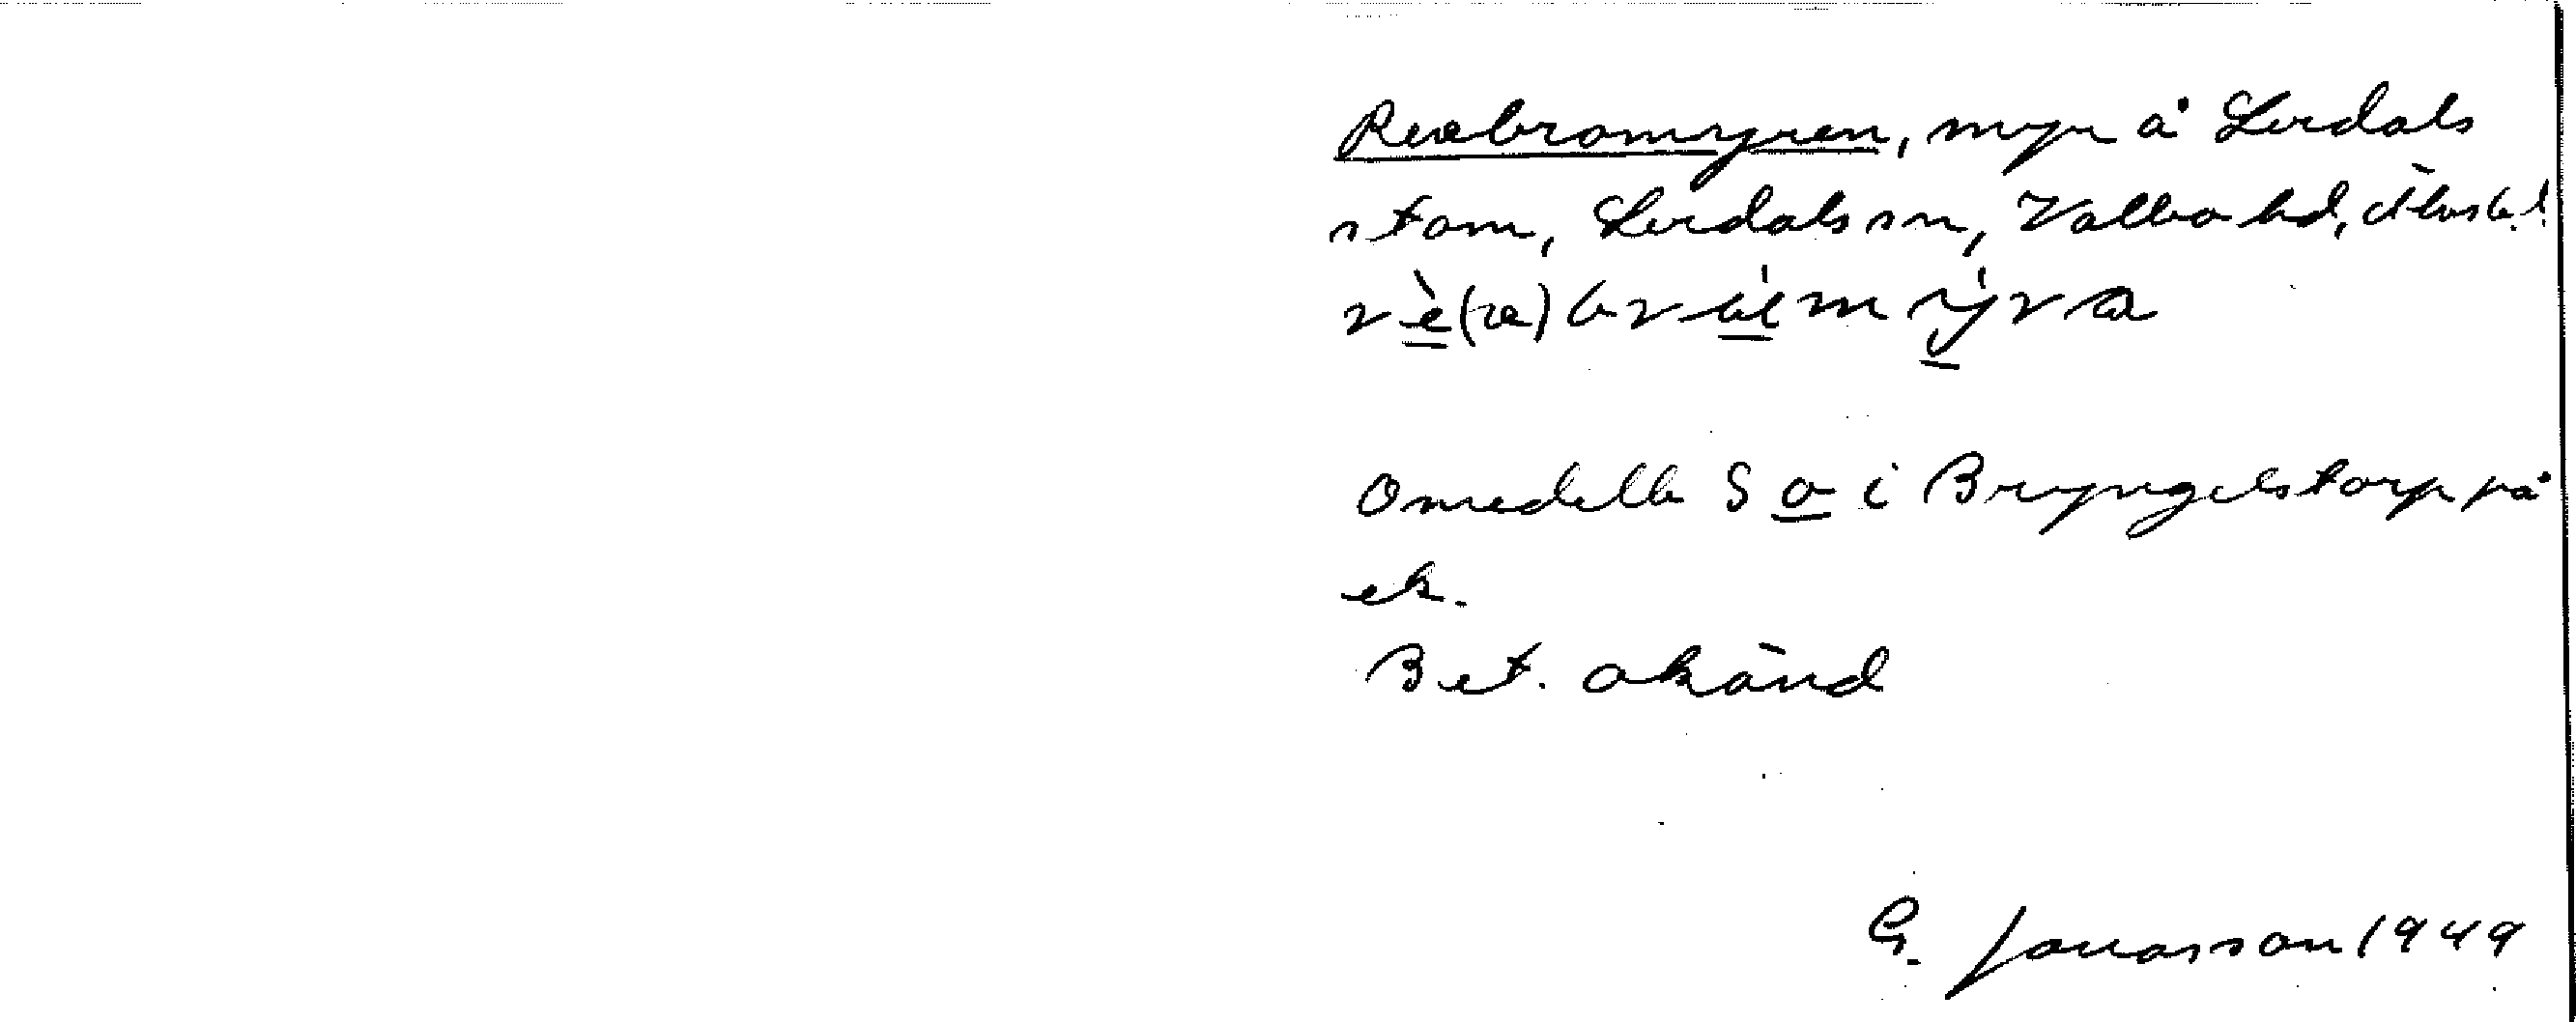 Rexbromyren, myr å Lerdals
stom, Lerdals sn, Valbo hd, Älvsb. l.
Omedelb S o i Bryngelstorp på
ek.
Bet. okänd
G. Jonasson 1949